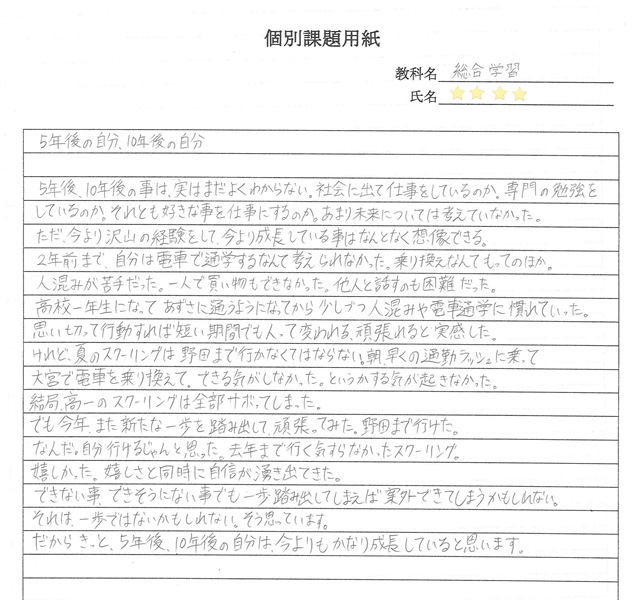 個別課題用紙
教科名 総合学習
氏名
5年後の自分、10年後の自分
5年後、10年後の事は、実はまだよくわからない。社会に出て仕事をしているのか。専門の勉強を
しているのか。それとも好きな事を仕事にするのか。あまり未来については考えていなかった。
ただ、今より沢山の経験をして、今より成長している事はなんとなく想像できる。
2年前まで、自分は電車で通学するなんて考えられなかった。乗り換えなんてもってのほか。
人混みが苦手だった。一人で買い物もできなかった。他人と話すのも困難だった。
高校一年生になって あずさに通うようになってから 少しづつ人混みや電車通学に慣れていった。
思い切って行動すれば短い期間でも人って変われる、頑張れると実感した。
けれど、夏のスクーリングは野田まで行かなくてはならない。朝早くの通勤ラッシュに乗って
大宮で電車を乗り換えて。できる気がしなかった。というかする気が起きなかった。
結局、高一のスクーリングは全部サボってしまった。
でも今年、また新たな一歩を踏み出して、頑張ってみた。野田まで行けた。
なんだ。自分行けるじゃんと思った。去年まで行く気すらなかったスクーリング。
嬉しかった。嬉しさと同時に自信が湧き出てきた。
できない事、できそうにない事でも一歩踏み出してしまえば案外できてしまうかもしれない。
それは、一歩ではないかもしれない。そう思っています。
だからきっと、5年後、10年後の自分は、今よりもかなり成長していると思います。